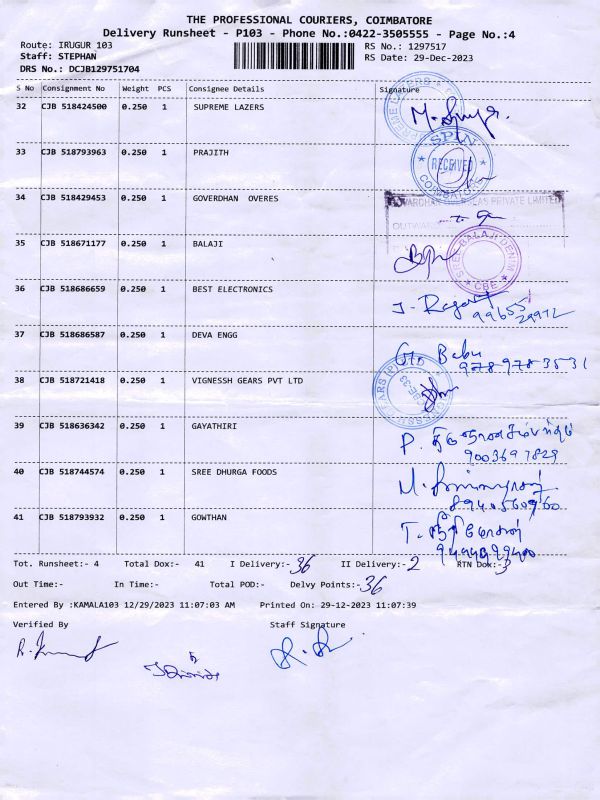 THE PROFESSIONAL COURIERS, COIMBATORE
Delivery Runsheet - P103 - Phone No.:0422-3505555 - Page No.:4
Route: IRUGUR 103
RS No.: 1297517
Staff: STEPHAN
RS Date: 29-Dec-2023
DRS No.: DCJB129751704
S No Consignment No Weight PCS Consignee Details Signature
32 CJB 518424500 0.250 1 SUPREME LAZERS
33 CJB 518793963 0.250 1 PRAJITH
SPIN
RECEIVED
COIMBATORE
34 CJB 518429453 0.250 1 GOVERDHAN OVERES
PRIVATE LIMITED
35 CJB 518671177 0.250 1 BALAJI
SREE BALAJI DENIM
CBE
36 CJB 518686659 0.250 1 BEST ELECTRONICS
99655
29972
37 CJB 518686587 0.250 1 DEVA ENGG
Babu
9789783531
38 CJB 518721418 0.250 1 VIGNESSH GEARS PVT LTD
CBE-33
39 CJB 518636342 0.250 1 GAYATHIRI
P.
9003697829
40 CJB 518744574 0.250 1 SREE DHURGA FOODS
M.
41 CJB 518793932 0.250 1 GOWTHAN
T.
Tot. Runsheet:- 4 Total Dox:- 41 I Delivery:- 36 II Delivery:- 2 RTN Dox:- 3
Out Time:- In Time:- Total POD:- Delvy Points:- 36
Entered By :KAMALA103 12/29/2023 11:07:03 AM Printed On: 29-12-2023 11:07:39
Verified By Staff Signature